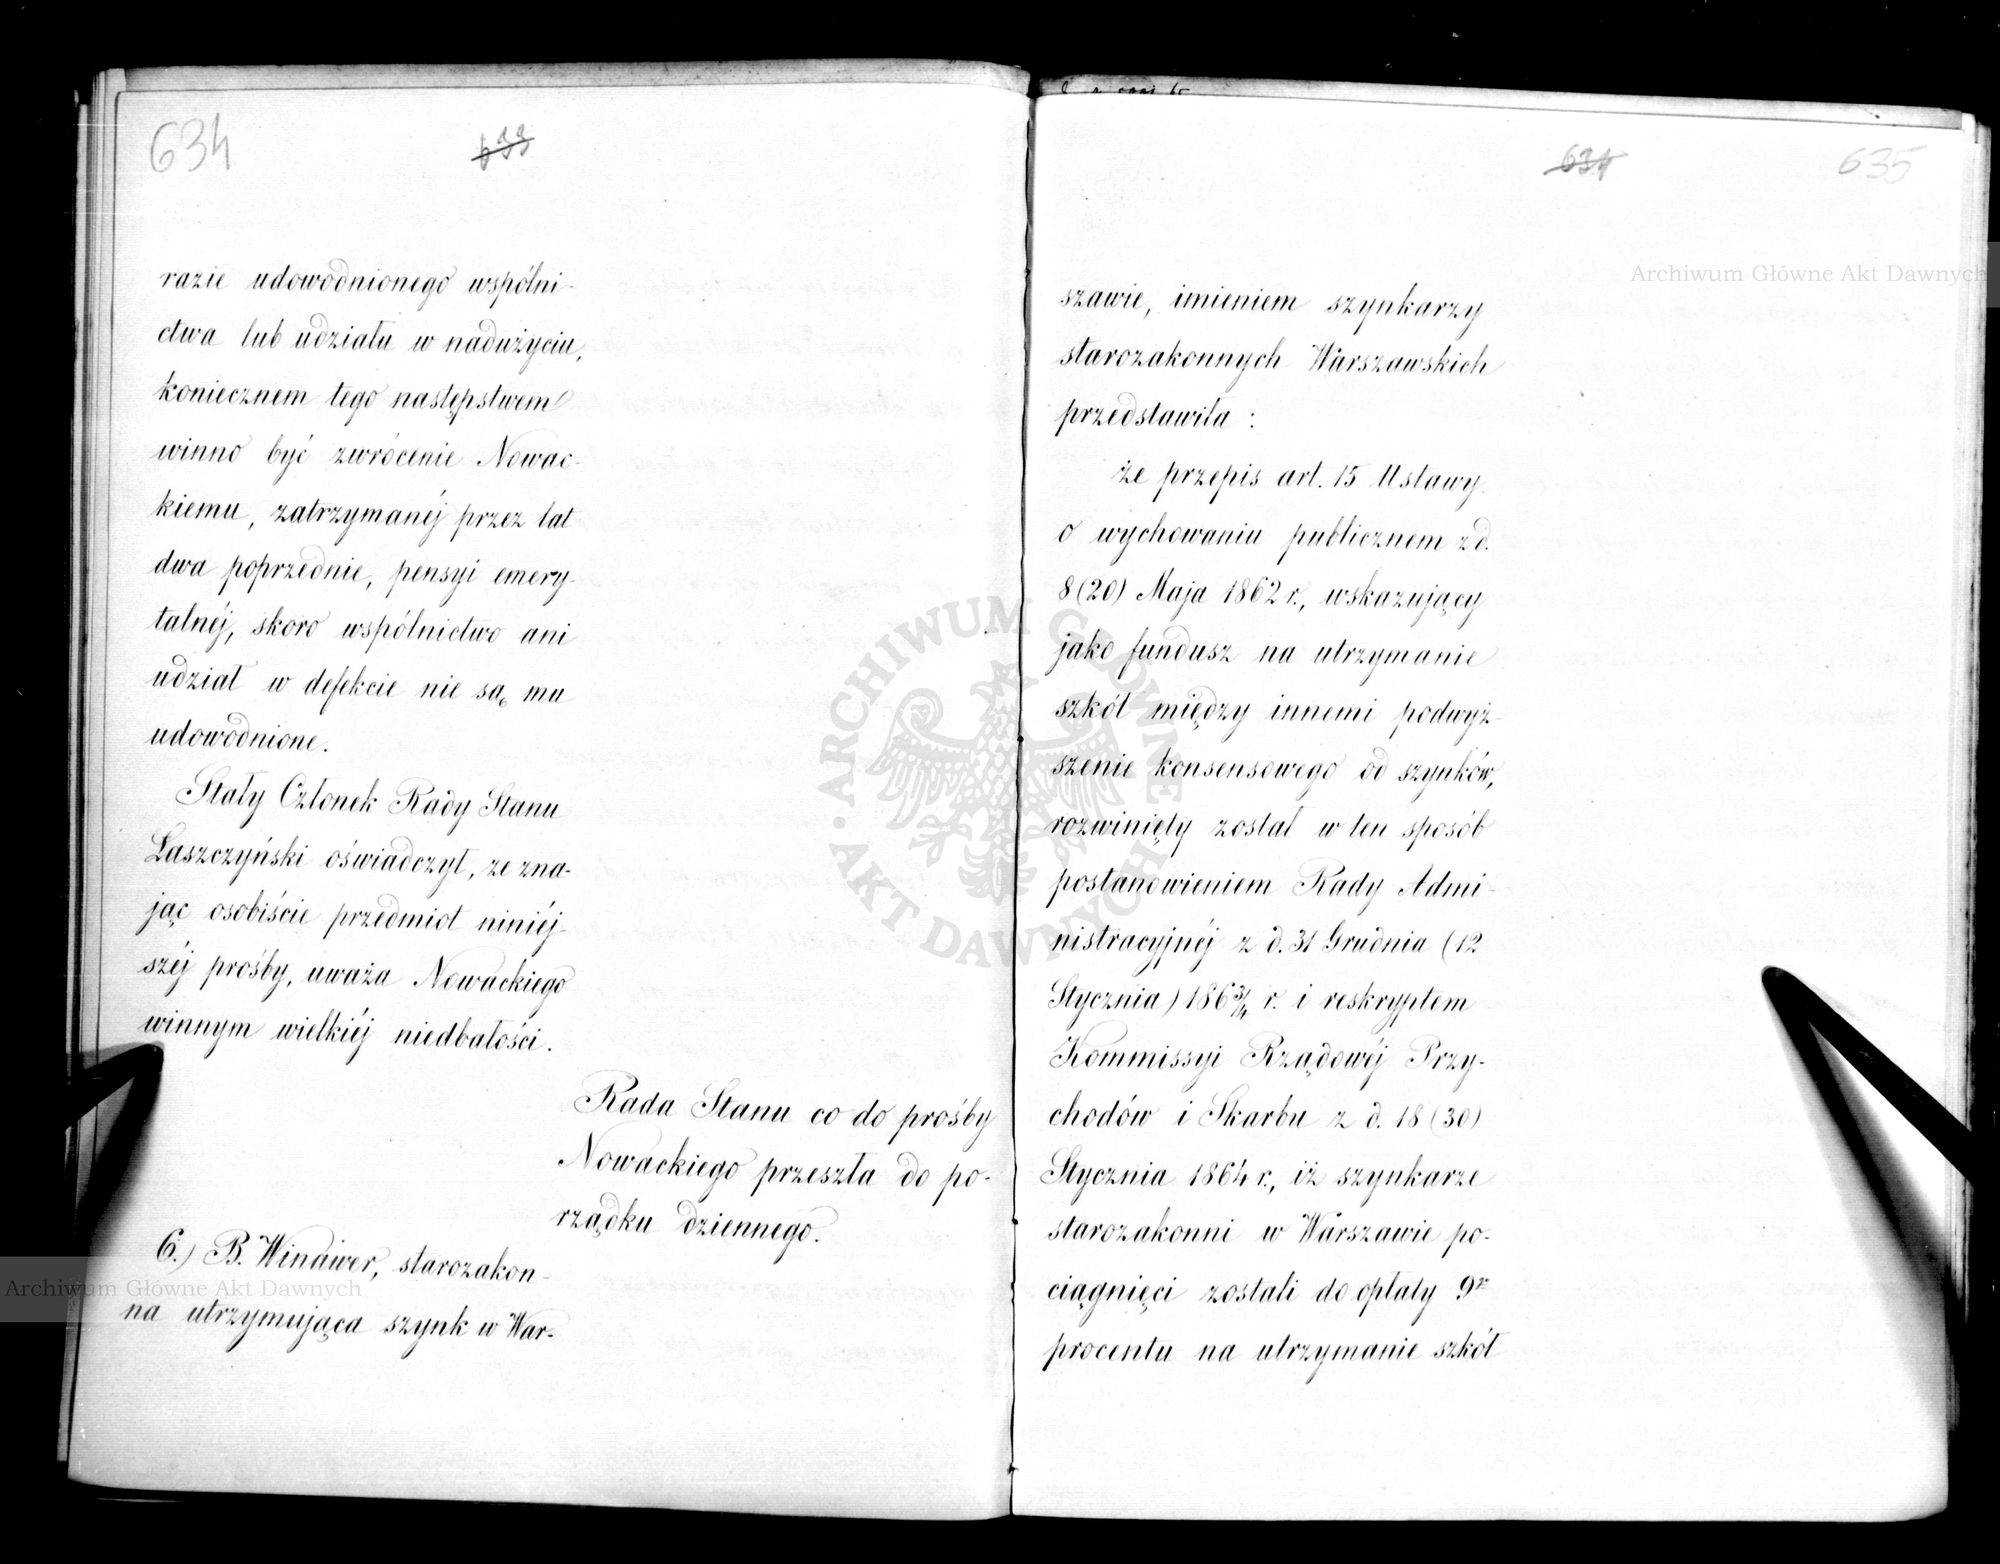 634
633
razie udowodnionego wspólni-
ctwa lub udziału w nadużyciu,
koniecznem tego następstwem
winno być zwrócenie Nowac-
kiemu, zatrzymanéj przez lat
dwa poprzednie, pensyi emery-
talnéj, skoro wspólnictwo ani
udział w defekcie nie są mu
udowodnione.
Stały Członek Rady Stanu
Łaszczyński oświadczył, że zna-
jąc osobiście przedmiot niniéj-
széj prośby, uważa Nowackiego
winnym wielkiéj niedbałości.
Rada Stanu co do prośby
Nowackiego przeszła do po-
rządku dziennego.
6.) B. Winawer, starozakon-
na utrzymująca szynk w War-
634
635
szawie, imieniem szynkarzy
starozakonnych Warszawskich
przedstawiła:
że przepis art. 15 Ustawy
o wychowaniu publicznem z d.
8 (20) Maja 1862 r., wskazujący
jako fundusz na utrzymanie
szkół między innemi podwyż-
szenie konsensowego od szynków,
rozwinięty został w ten sposób
postanowieniem Rady Admi-
nistracyjnéj z d. 31 Grudnia (12
Stycznia) 1863/4 r. i reskryptem
Kommissyi Rządowéj Przy-
chodów i Skarbu z d. 18 (30)
Stycznia 1864 r., iż szynkarze
starozakonni w Warszawie po-
ciągnięci zostali do opłaty 9u
procentu na utrzymanie szkół
Archiwum Główne Akt Dawnych
Archiwum Główne Akt Dawnych
ARCHIWUM GŁÓWNE AKT DAWNYCH